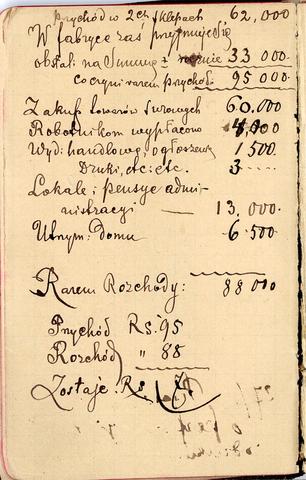 Przychód w 2ch sklepach 62,000
W fabryce zaś przyjmuje się
obstal. na Summę rocznie 33 000
co czyni razem Przychod. 95 000
Zakup towarów surowych 60.000
Robotnikom wypłacono 4,000
Wyd: handlowe, ogłoszeń 1 500
Druki, etc: etc. 3
Lokale i pensye admi-
nistracyi — 13,000.
Utrzym: domu 6.500
Razem Rozchody: 88 000
Przychód Rs: 95
Rozchód „ 88
Zostaje Rs. 7.